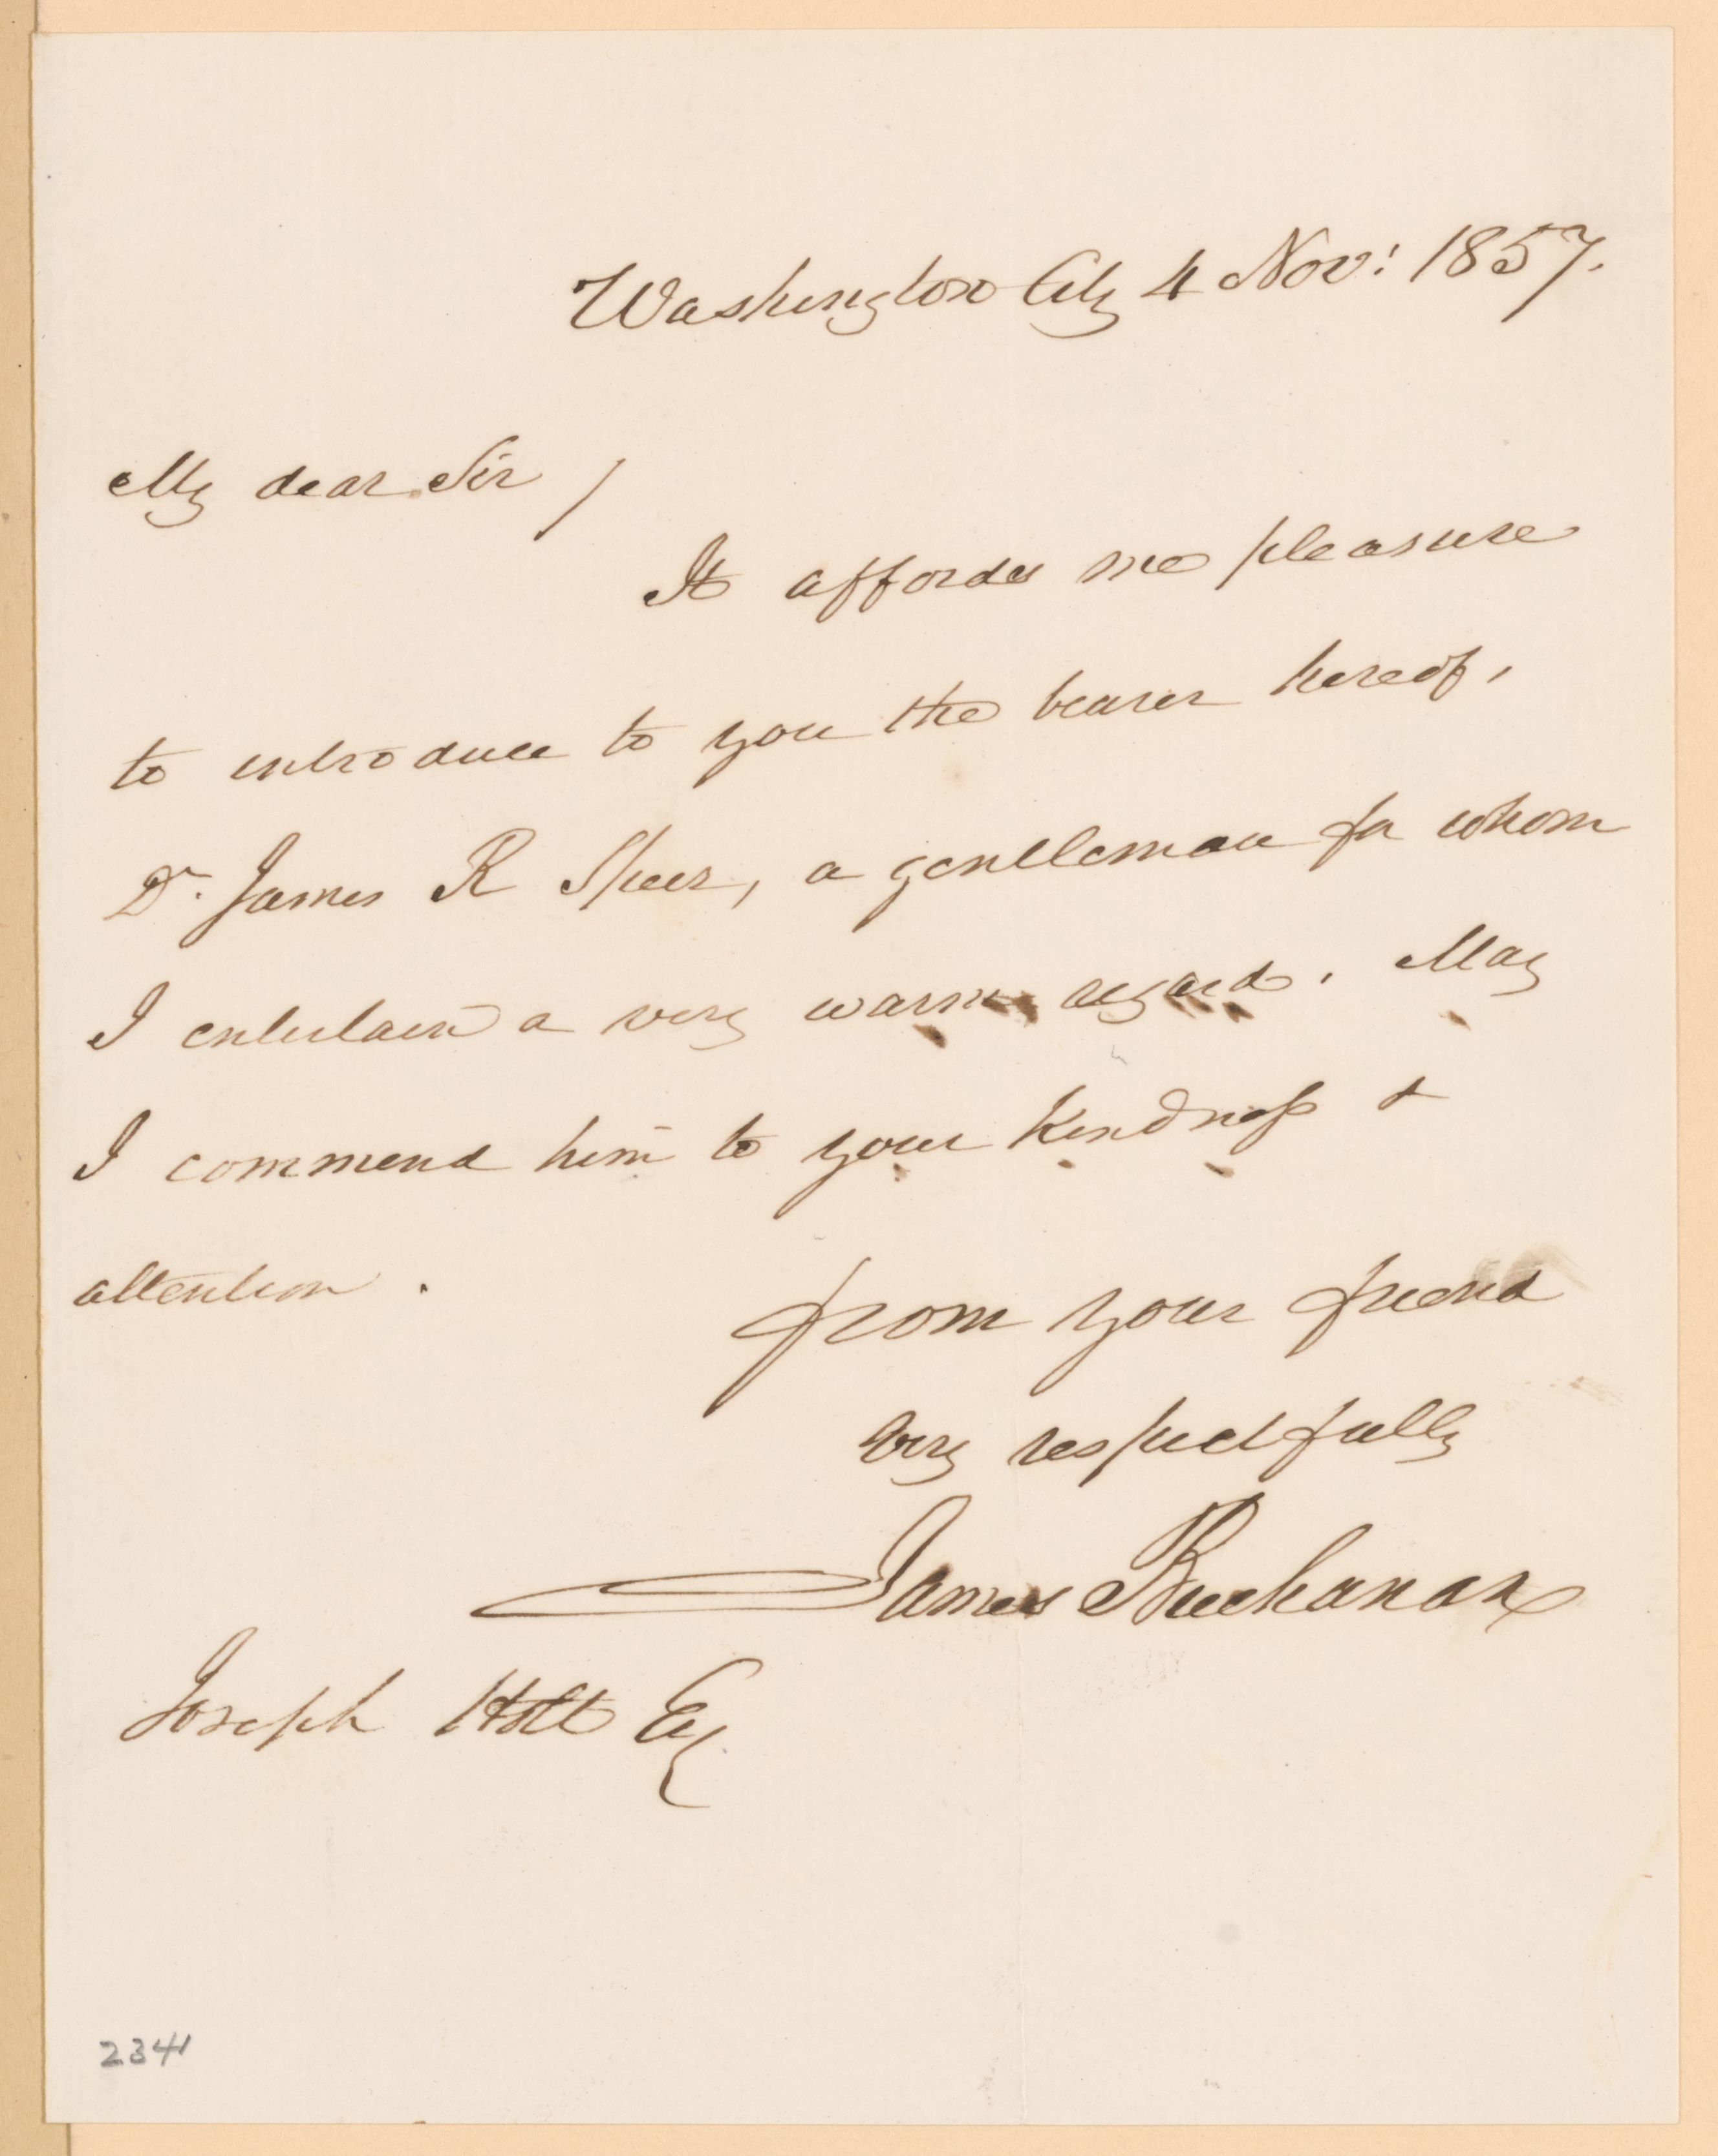 Washington City 4 Nov: 1857.
My dear Sir /
It affords me pleasure
to introduce to you the bearer hereof,
Dr. James R Speer, a gentleman for whom
I entertain a very warm regard. May
I commend him to your kindness &
attention.
from your friend
very respectfully
James Buchanan
Joseph Holt Esq
2341